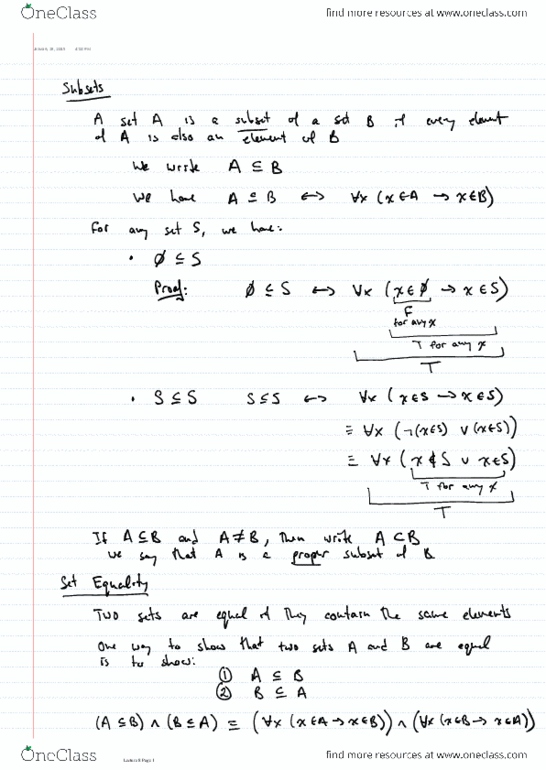 OneClass
find more resources at www.oneclass.com
Subsets
A set A is a subset of a set B if every element
of A is also an element of B
We write A ⊆ B
We have A ⊆ B ↔ ∀x (x∈A → x∈B)
For any set S, we have:
• ∅ ⊆ S
Proof: ∅ ⊆ S ↔ ∀x (x∈∅ → x∈S)
F
for any x
T for any x
T
• S ⊆ S S⊆S ↔ ∀x (x∈S → x∈S)
≡ ∀x (¬(x∈S) ∨ (x∈S))
≡ ∀x (x∉S ∨ x∈S)
T for any x
T
If A⊆B and A≠B, then write A⊂B
we say that A is a proper subset of B
Set Equality
Two sets are equal if they contain the same elements
One way to show that two sets A and B are equal
is to show:
① A ⊆ B
② B ⊆ A
(A⊆B) ∧ (B⊆A) ≡ (∀x (x∈A → x∈B)) ∧ (∀x (x∈B → x∈A))
OneClass
Page 1
find more resources at www.oneclass.com